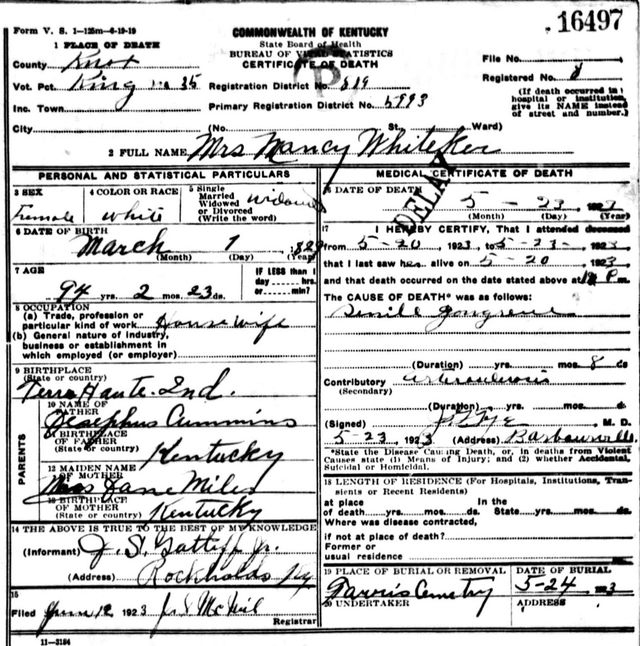 Form V. S. 1—125m—6-19-19
16497
COMMONWEALTH OF KENTUCKY
State Board of Health
BUREAU OF VITAL STATISTICS
CERTIFICATE OF DEATH
1 PLACE OF DEATH
County Knox
Vot. Pct. King no 35
Inc. Town
City
Registration District No. 819
Primary Registration District No. 5993
(No. St., Ward)
File No.
Registered No. 8
(If death occurred in
hospital or institution,
give its NAME instead
of street and number.)
2 FULL NAME Mrs Nancy Whiteker
DELAY
PERSONAL AND STATISTICAL PARTICULARS
3 SEX
Female
4 COLOR OR RACE
white
5 Single
Married
Widowed
or Divorced
(Write the word)
widowed
6 DATE OF BIRTH
March 1 1829
(Month) (Day) (Year)
7 AGE
94 yrs. 2 mos. 23 ds.
IF LESS than 1
day hrs.
or min?
8 OCCUPATION
(a) Trade, profession or
particular kind of work House wife
(b) General nature of industry,
business or establishment in
which employed (or employer)
9 BIRTHPLACE
(State or country)
Terre Haute. Ind.
PARENTS
10 NAME OF
FATHER
Josephus Cummins
11 BIRTHPLACE
OF FATHER
(State or country)
Kentucky
12 MAIDEN NAME
OF MOTHER
Jane Miles
13 BIRTHPLACE
OF MOTHER
(State or country)
Kentucky
14 THE ABOVE IS TRUE TO THE BEST OF MY KNOWLEDGE
(Informant) J. S. Jr.
(Address) Rockholds Ky
15
Filed June 12 1923 J. S McNeil
Registrar
11—3184
MEDICAL CERTIFICATE OF DEATH
16 DATE OF DEATH
5 - 23 1923
(Month) (Day) (Year)
17 I HEREBY CERTIFY, That I attended deceased
from 5-20, 1923, to 5-23-, 1923
that I last saw her alive on 5-20, 1923
and that death occurred on the date stated above at 12 P m.
The CAUSE OF DEATH* was as follows:
Senile gangrene
(Duration) yrs. mos. 8 ds
Contributory
(Secondary)
(Duration) yrs. mos. ds
(Signed) M. D.
5-23, 1923 (Address) Barbourville.
*State the Disease Causing Death, or, in deaths from Violent
Causes state (1) Means of Injury; and (2) whether Accidental,
Suicidal or Homicidal.
18 LENGTH OF RESIDENCE (For Hospitals, Institutions, Tran-
sients or Recent Residents)
At place In the
of death yrs. mos. ds. State yrs. mos. ds.
Where was disease contracted,
if not at place of death?
Former or
usual residence
19 PLACE OF BURIAL OR REMOVAL
DATE OF BURIAL
Cemetry
5-24 1923
20 UNDERTAKER
ADDRESS